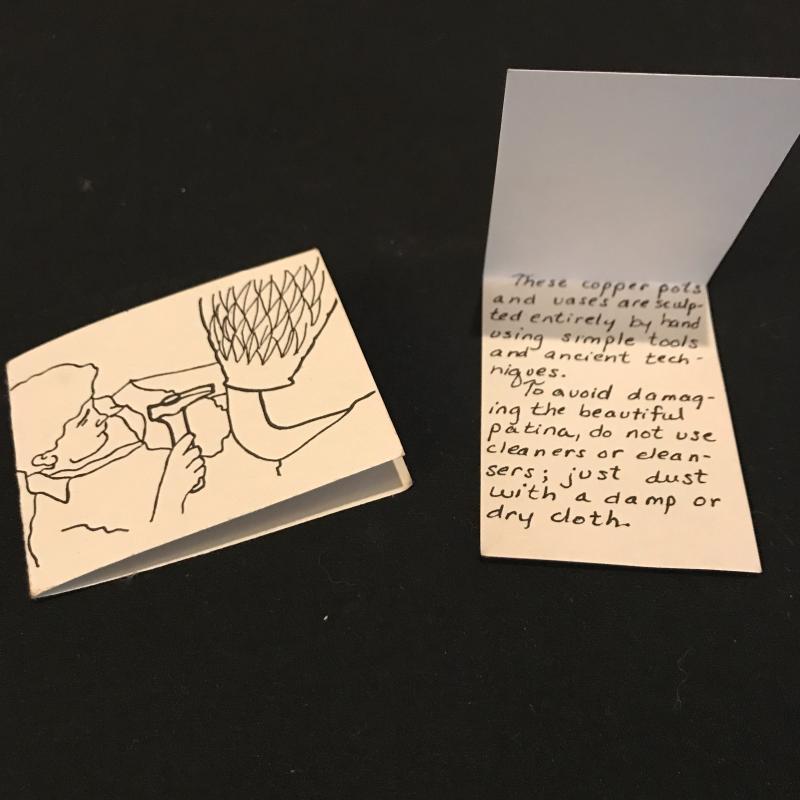 These copper pots
and vases are sculp-
ted entirely by hand
using simple tools
and ancient tech-
niques.
To avoid damag-
ing the beautiful
patina, do not use
cleaners or clean-
sers; just dust
with a damp or
dry cloth.